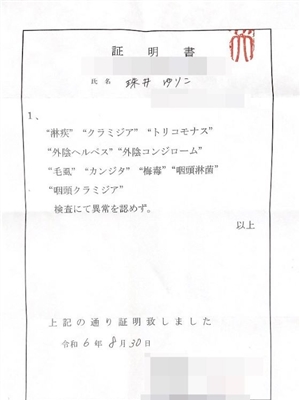 証明書
氏名 珠井 ゆりこ
1、
“淋疾” “クラミジア” “トリコモナス”
“外陰ヘルペス” “外陰コンジローム”
“毛虱” “カンジタ” “梅毒” “咽頭淋菌”
“咽頭クラミジア”
検査にて異常を認めず。
以上
上記の通り証明致しました
令和 6年 8月 30日